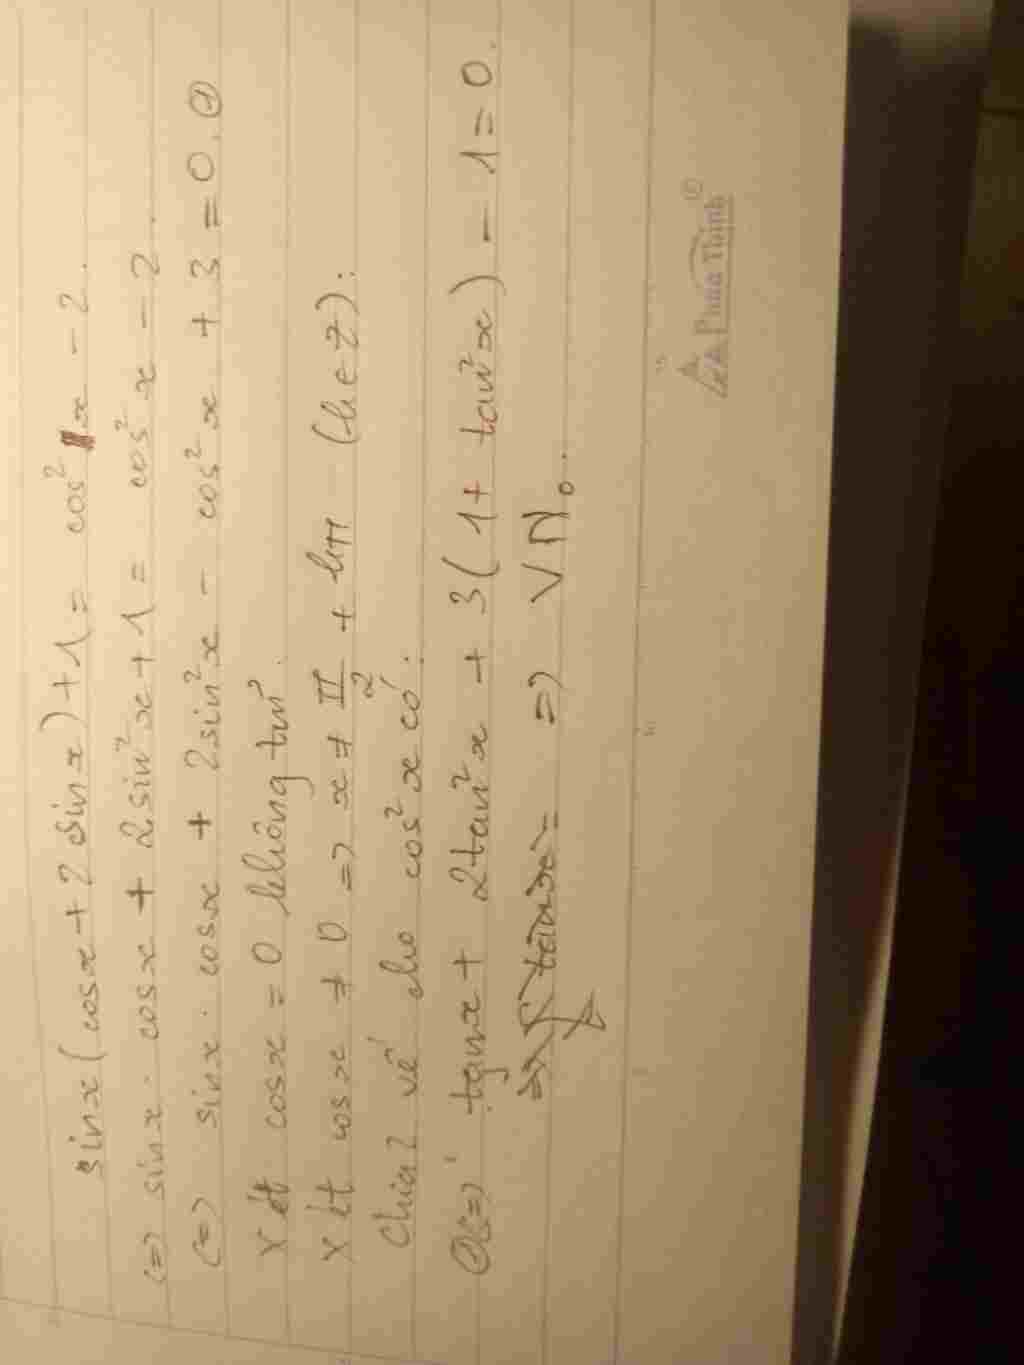 sinx(cosx+2sinx)+1=cos²x-2.
(=) sinx.cosx+2sin²x+1=cos²x-2.
(=) sinx.cosx+2sin²x-cos²x+3=0.①
Xét cosx=0 không tm
Xét cosx≠0 => x≠π/2+kπ (k∈Z):
Chia 2 vế cho cos²x có:
①(=) tanx+2tan²x+3(1+tan²x)-1=0.
=> VN.
Phúc Thịnh